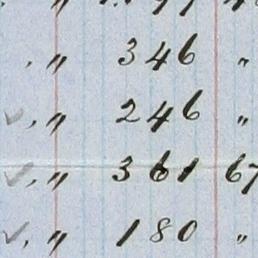 , " 346 "
✓, " 246 "
✓, " 361 67
✓, " 180 "